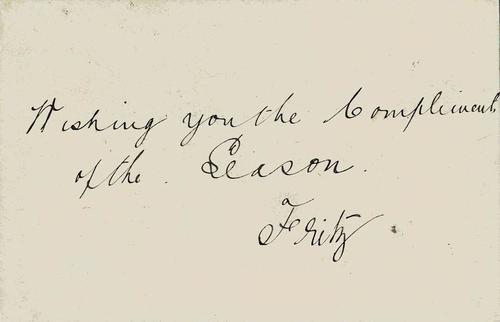 Wishing you the Compliments
of the Season.
Fritz